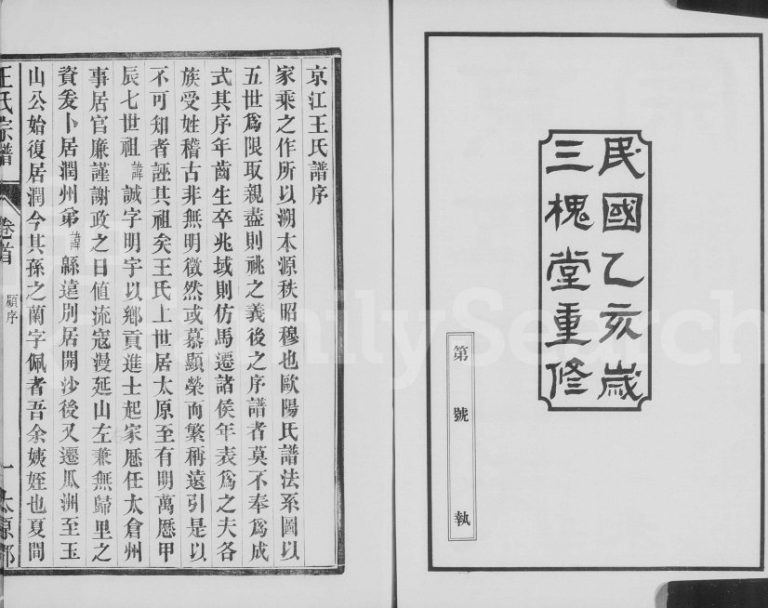 民國乙亥歲
三槐堂重修
第 號 執
京江王氏譜序
家乘之作所以溯木源秩昭穆也歐陽氏譜法系圖以
五世爲限取親盡則祧之義後之序譜者莫不奉爲成
式其序年齒生卒兆域則仿馬遷諸侯年表爲之夫各
族受姓稽古非無明徵然或慕顯榮而繁稱遠引是以
不可知者誣其祖矣王氏上世居太原至有明萬厯甲
辰七世祖諱誠字明宇以鄉貢進士起家厯任太倉州
事居官廉謹謝政之日值流寇漫延山左兼無歸里之
資爰卜居潤州弟諱緜遠別居開沙後又遷瓜洲至玉
山公始復居潤今其孫之蘭字佩者吾余姨姪也夏間
王氏宗譜
卷首
顧序
一
太原郡
FamilySearch